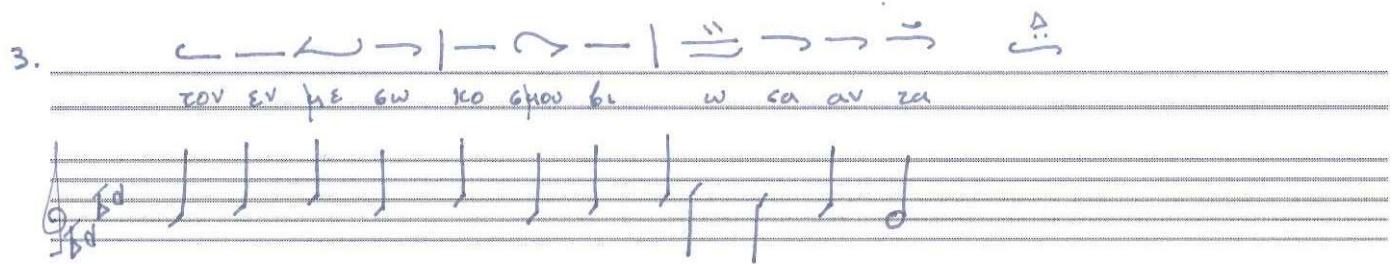 3.
τον εν με σω κο σμου βι ω σα αν τα